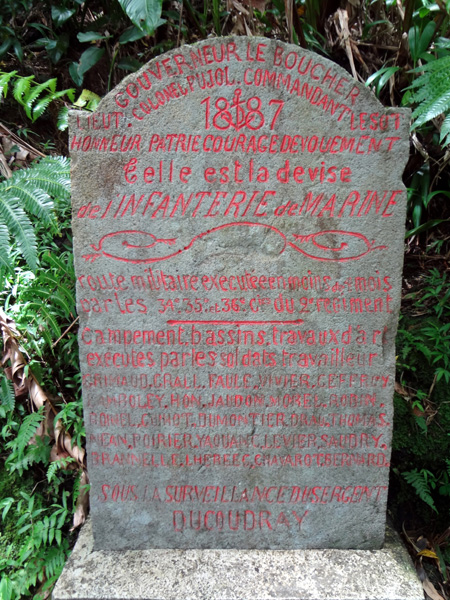 GOUVERNEUR LE BOUCHER
LIEUT. COLONEL PUJOL. COMMANDANT LES DÉT
1887
HONNEUR PATRIE COURAGE DEVOUEMENT
Celle est la devise
de l'INFANTERIE de MARINE
route militaire executée en moins de mois
par les 34e 35e et 36e Cie du 2e regiment
Campement, bassins, travaux d'art
exécutés par les soldats travailleur
CRALL, FAULE, VIVIER, GEFFROY
RON, JAUDON, MORES, ROBIN
GUYOT, DUMONTIER, THOMAS
NEAN, POIRIER, YAOUANC, LEVIER, SAUDRY,
CHAVAROT, BERNARD.
SOUS LA SURVEILLANCE DU SERGENT
DUCOUDRAY